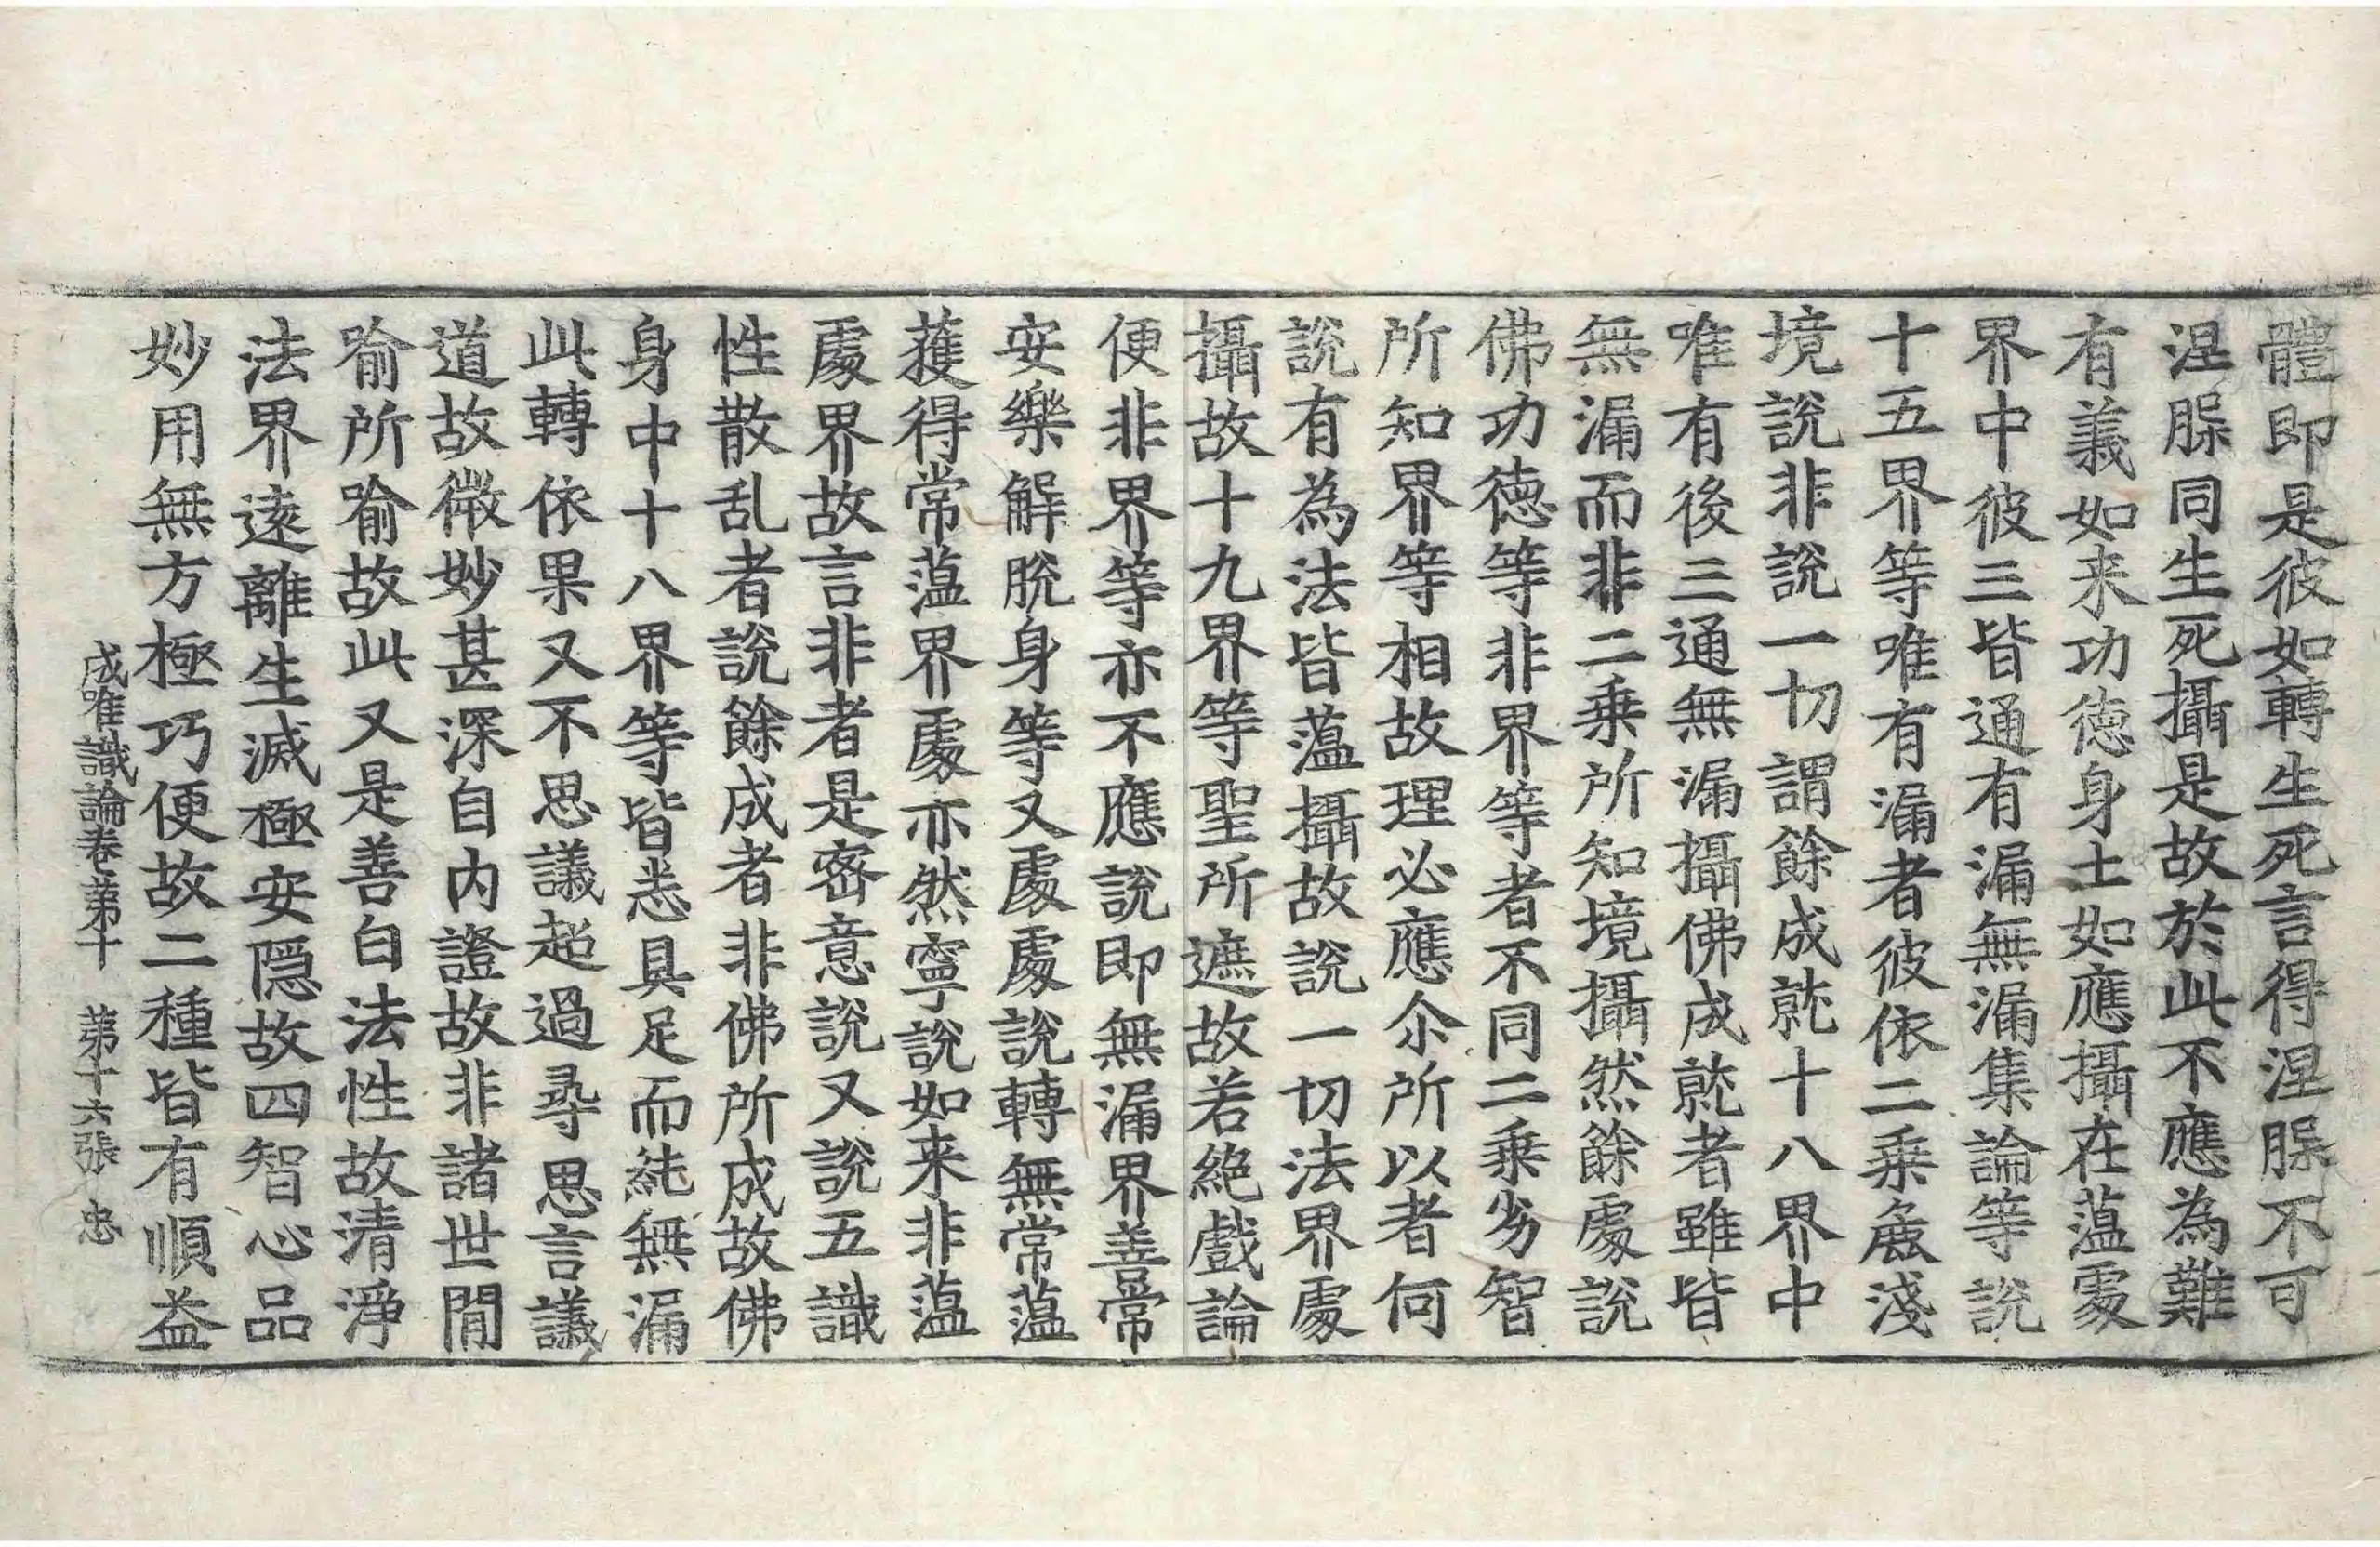 體即是彼如轉生死言得涅䐧不可
涅䐧同生死攝是故於此不應為難
有義如来功徳身土如應攝在蕰處
界中彼三皆通有漏無漏集論等說
十五界等唯有漏者彼依二乗麁淺
境說非說一切謂餘成就十八界中
唯有後三通無漏攝佛成就者雖皆
無漏而非二乗所知境攝然餘處說
佛功徳等非界等者不同二乗劣智
所知界等相故理必應尒所以者何
說有為法皆蕰攝故說一切法界處
攝故十九界等聖所遮故若絶戲論
便非界等亦不應說即無漏界善常
安樂解脫身等又處處說轉無常蕰
獲得常蕰界處亦然寧說如来非蕰
處界故言非者是密意說又說五識
性散乱者說餘成者非佛所成故佛
身中十八界等皆悉具足而純無漏
此轉依果又不思議超過尋思言議
道故微妙甚深自内證故非諸世間
喻所喻故此又是善白法性故清淨
法界遠離生滅極安隠故四智心品
妙用無方極巧便故二種皆有順益
成唯識論卷苐十 苐十六張 忠